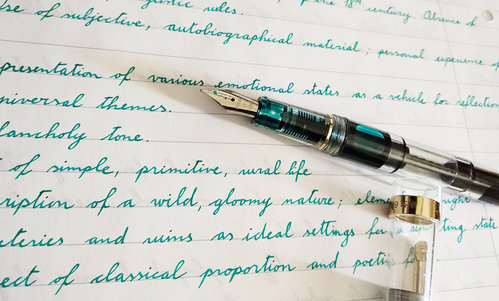 rules. of the 18th century. Absence of
se of subjective, autobiographical material; personal experience of
presentation of various emotional states as a vehicle for reflection
niversal themes.
lancholy tone.
of simple, primitive, rural life
ription of a wild, gloomy nature; elem night
eteries and ruins as ideal settings for a state
ect of classical proportion and poetic fo